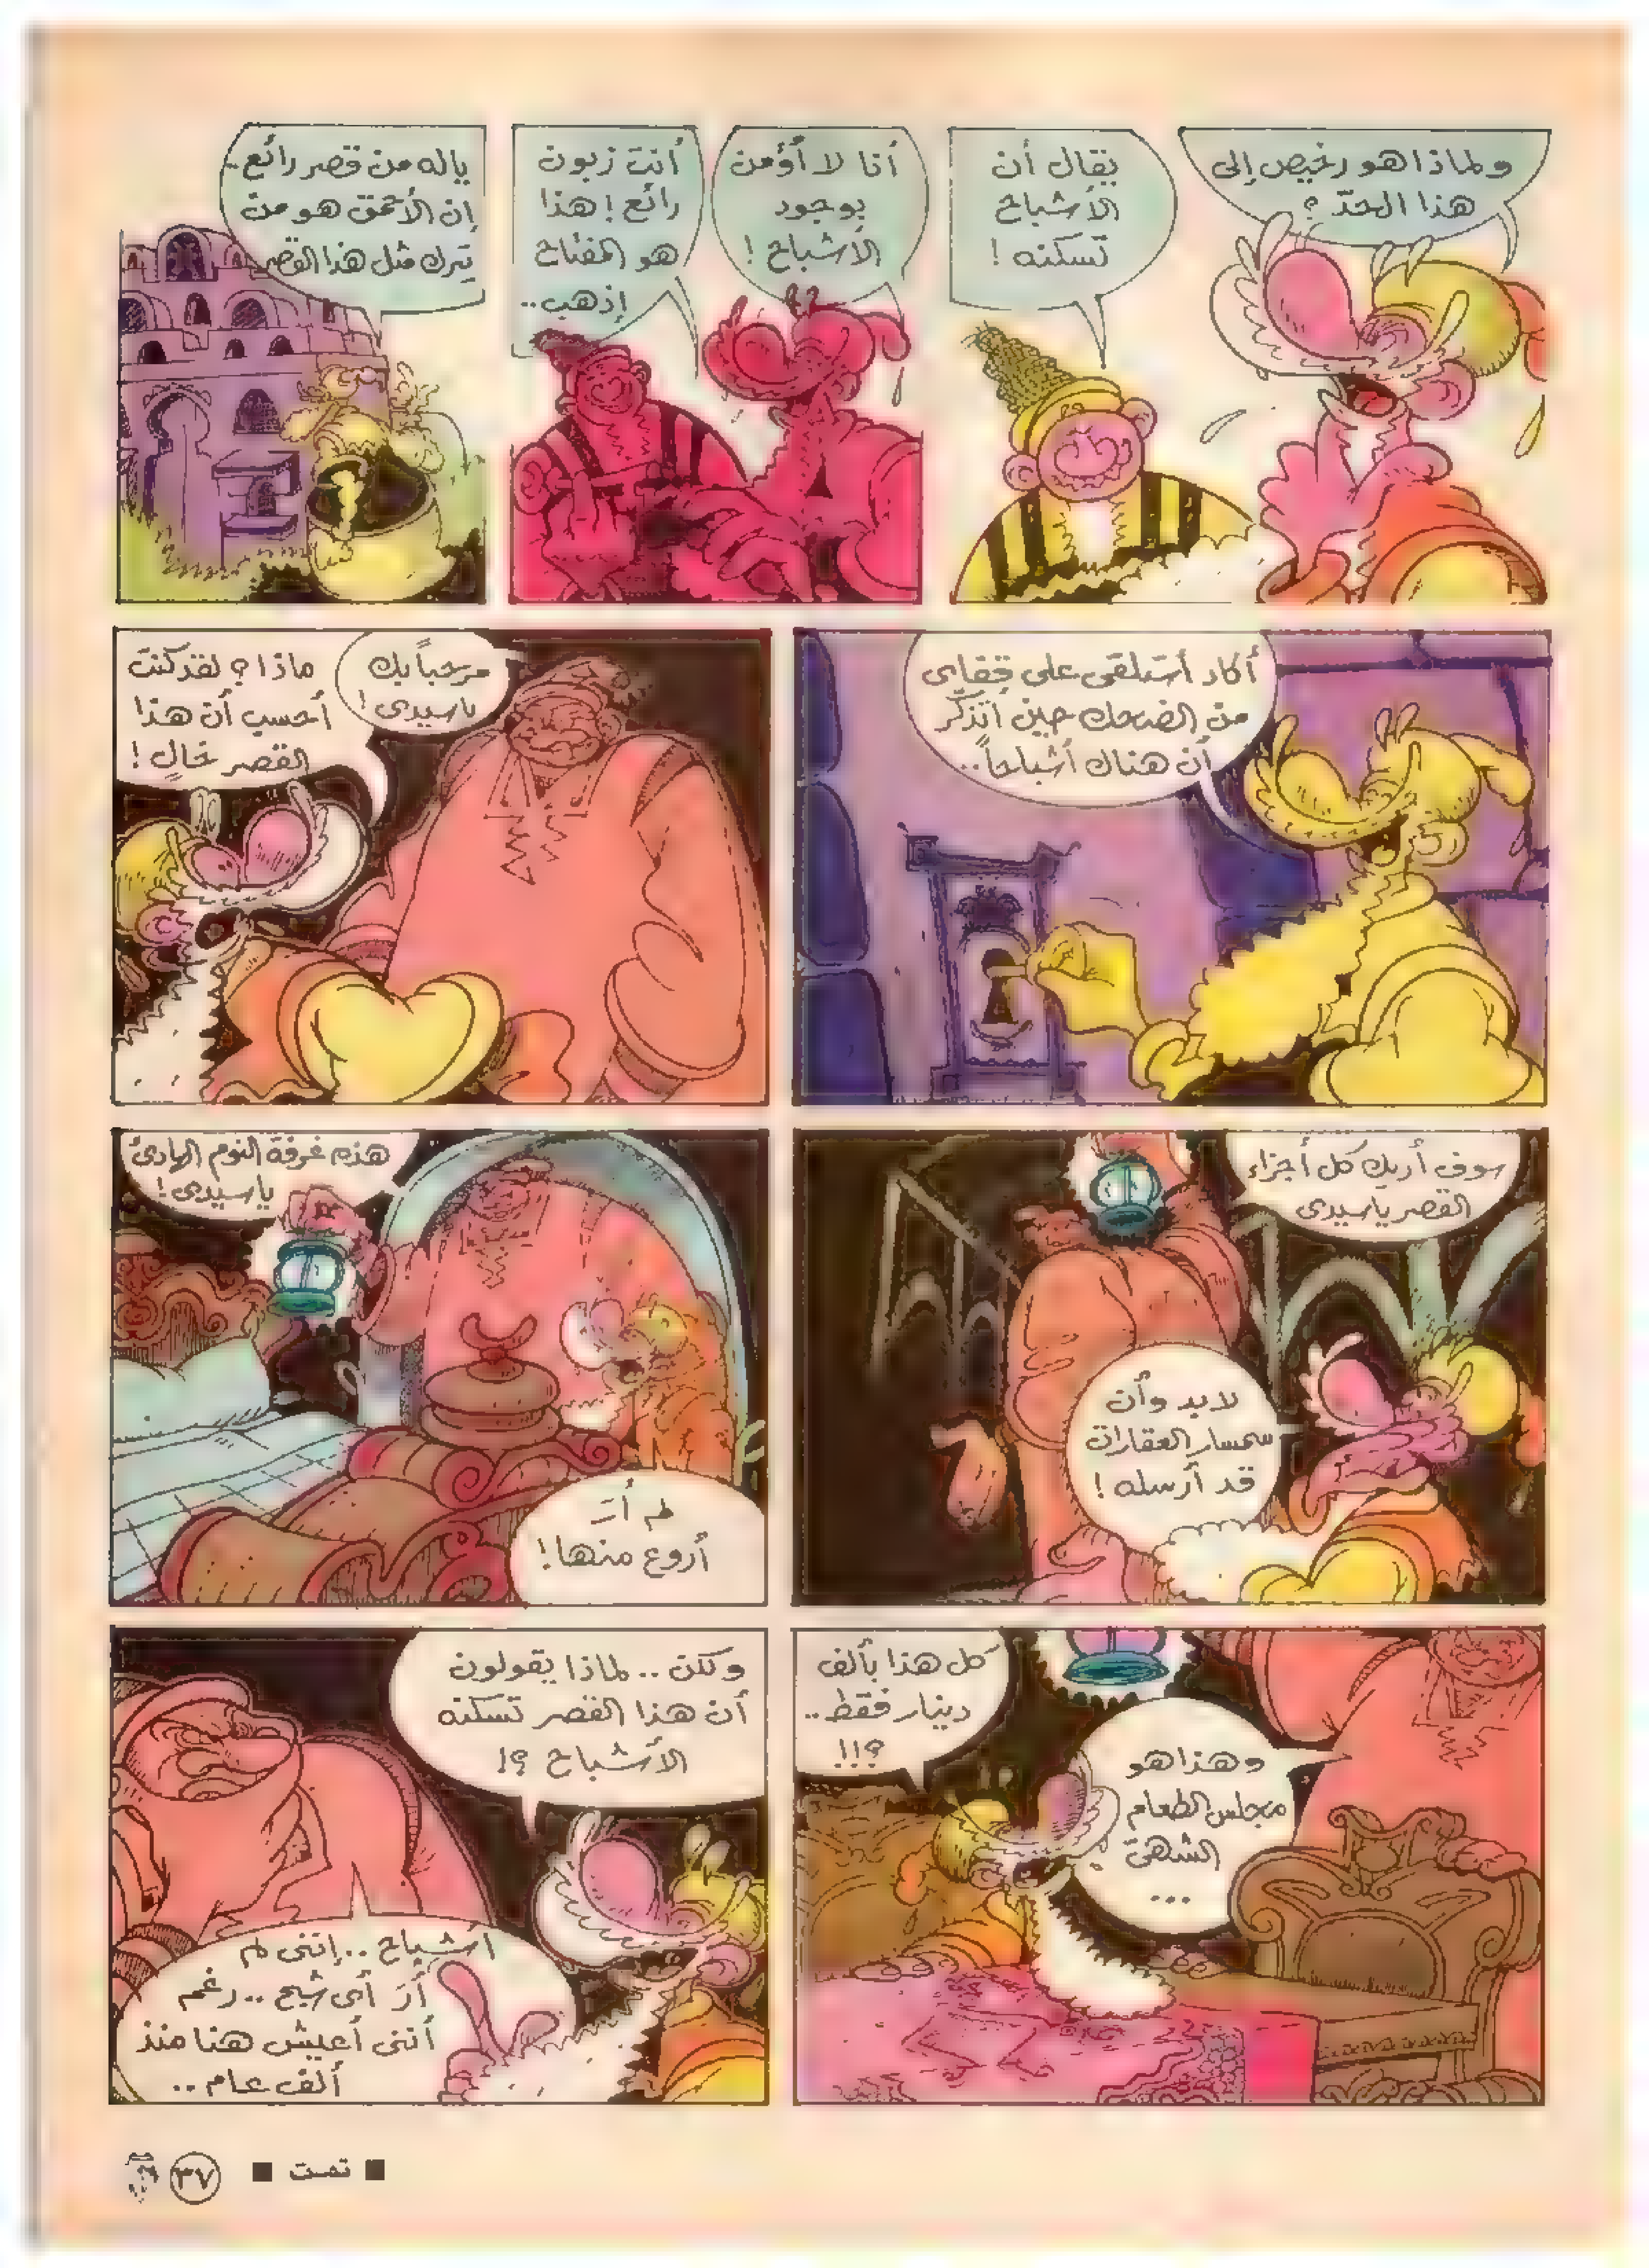 ولماذا هو رخيص إلى
هذا الحدّ ؟
يقال أن
الأشباح
تسكنه !
أنا لا أؤمن
بوجود
الأشباح !
أنت زبون
رائع ! هذا
هو المفتاح
إذهب ..
ياله من قصر رائع ..
إن الأحمق هو من
يترك مثل هذا القصر
أكاد أستلقى على قفاى
من الضحك حين أتذكّر
أن هناك أشباحاً ..
مرحباً بك
ياسيدى !
ماذا ؟ لقد كنت
أحسب أن هذا
القصر خالٍ !
سوف أريك كل أجزاء
القصر ياسيدى
لابد وأن
سمسار العقارات
قد أرسله !
هذه غرفة النوم الهادئ
ياسيدى !
لم أرَ
أروع منها !
وهذا هو
مجلس الطعام
الشهىّ
...
كل هذا بألف
دينار فقط ..
؟!!
ولكن .. لماذا يقولون
أن هذا القصر تسكنه
الأشباح ؟!
أشباح .. إننى لم
أرَ أى شبح .. رغم
أننى أعيش هنا منذ
ألف عام ..
■ تمت ■
٣٧